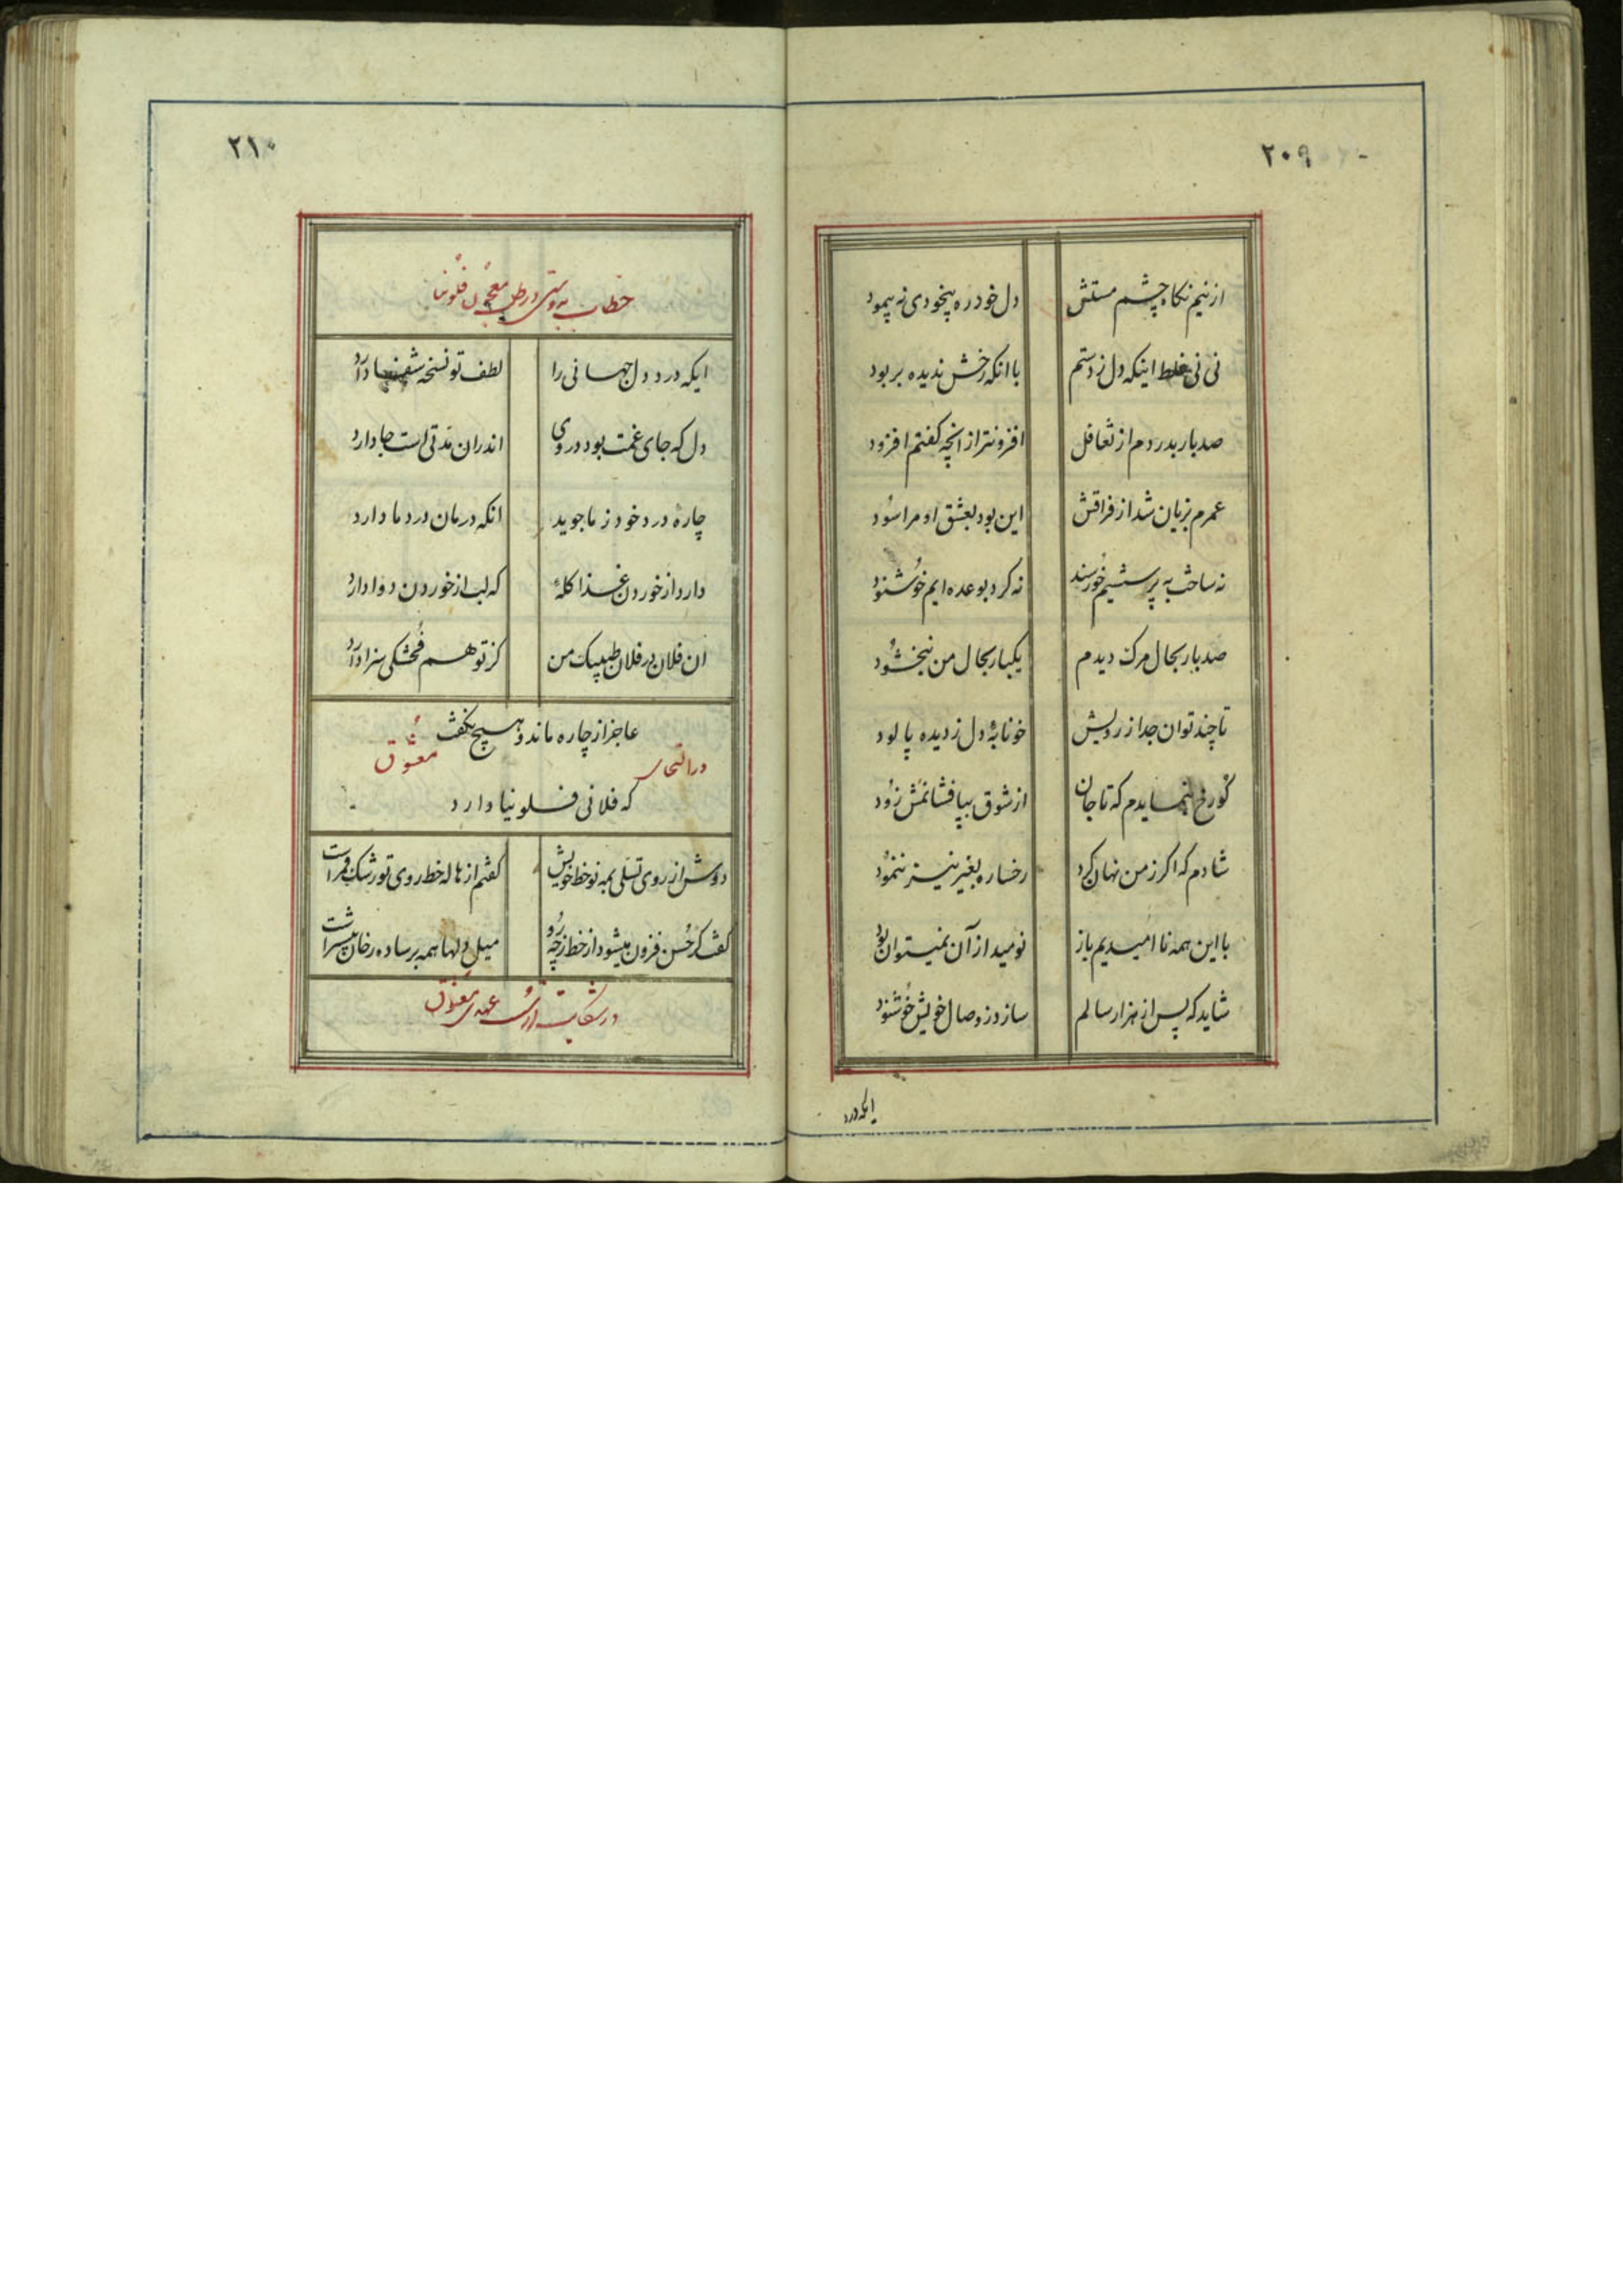 ۲۰۹
از نیم نکاه چشم مستش دل خود ره بیخودی نه پیمود
نی نی غلط اینکه دل ز دستم با انکه رخش ندیده بربود
صد بار بدردم از تغافل افزونتر از انچه کفتم افزود
عمرم بزیان شد از فراقش این بود بعشق او مرا سود
نه ساخت به پرسشیم خورسند نه کرد بوعده ایم خوشنود
صد بار بحال مرک دیدم یکبار بحال من نبخشود
تا چند توان جدا ز رویش خونابهٔ دل ز دیده پالود
کو رخ بنمایدم که تا جان از شوق بپا فشانمش زود
شادم که اکر ز من نهان کرد رخساره بغیر نیز ننمود
با این همه نا امیدیم باز نومید از آن نمیتوان بود
شاید که پس از هزار سالم سازد ز وصال خویش خوشنود
ایکه درد
۲۱۰
خطاب به دوستی در طلب معجون فلونیا
ایکه درد دل جهانی را لطف تو نسخه شفا دارد
دل که جای غمت بود دروی اندران مدتی است جا دارد
چاره درد خود ز ما جوید انکه درمان درد ما دارد
دارد از خوردن غذا کلهٔ که لب از خوردن دوا دارد
ان فلان در فلان طبیبک من کز تو هم فحشکی سزا دارد
عاجز از چاره ماند و هیچ نکفت
در معشوق
که فلانی فلونیا دارد
دوش از روی تسلی بمه نوخط خویش کفتم از هاله خط روی تو رشک قمر است
کفت کر حسن فزون میشود از خط ز چه رو میل دلها همه بر ساده رخان بیشتر است
در شکایت از عهدی معشوق